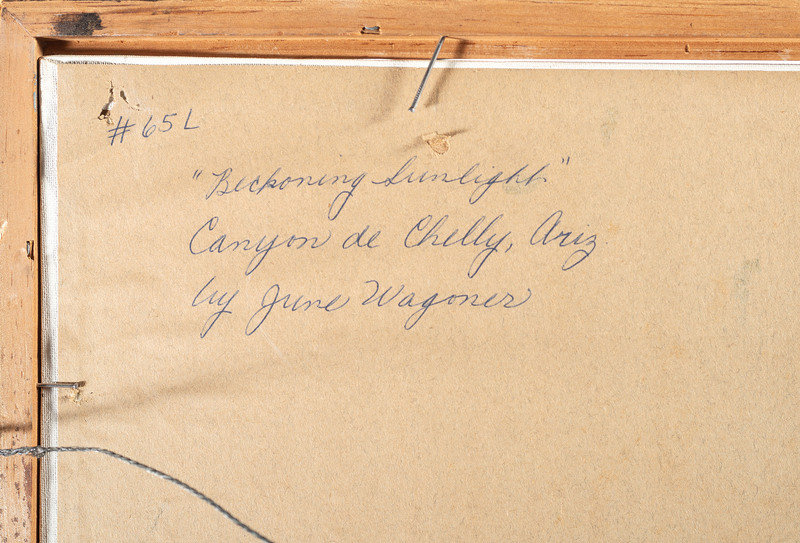 #65L
"Beckoning Sunlight"
Canyon de Chelly, Ariz.
by June Wagoner